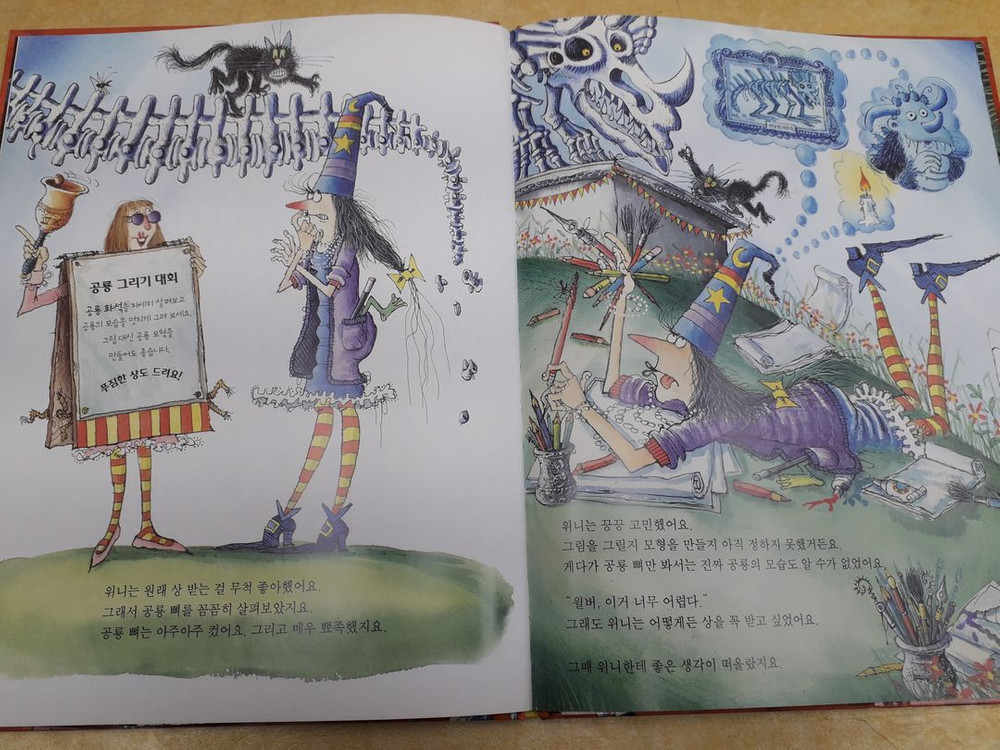 공룡 그리기 대회
공룡 화석을 자세히 살펴보고
공룡의 모습을 멋지게 그려 보세요.
그림 대신 공룡 모형을
만들어도 좋습니다.
푸짐한 상도 드려요!
위니는 원래 상 받는 걸 무척 좋아했어요.
그래서 공룡 뼈를 꼼꼼히 살펴보았지요.
공룡 뼈는 아주아주 컸어요. 그리고 매우 뾰족했지요.
위니는 끙끙 고민했어요.
그림을 그릴지 모형을 만들지 아직 정하지 못했거든요.
게다가 공룡 뼈만 봐서는 진짜 공룡의 모습도 알 수가 없었어요.
“윌버, 이거 너무 어렵다.”
그래도 위니는 어떻게든 상을 꼭 받고 싶었어요.
그때 위니한테 좋은 생각이 떠올랐지요.